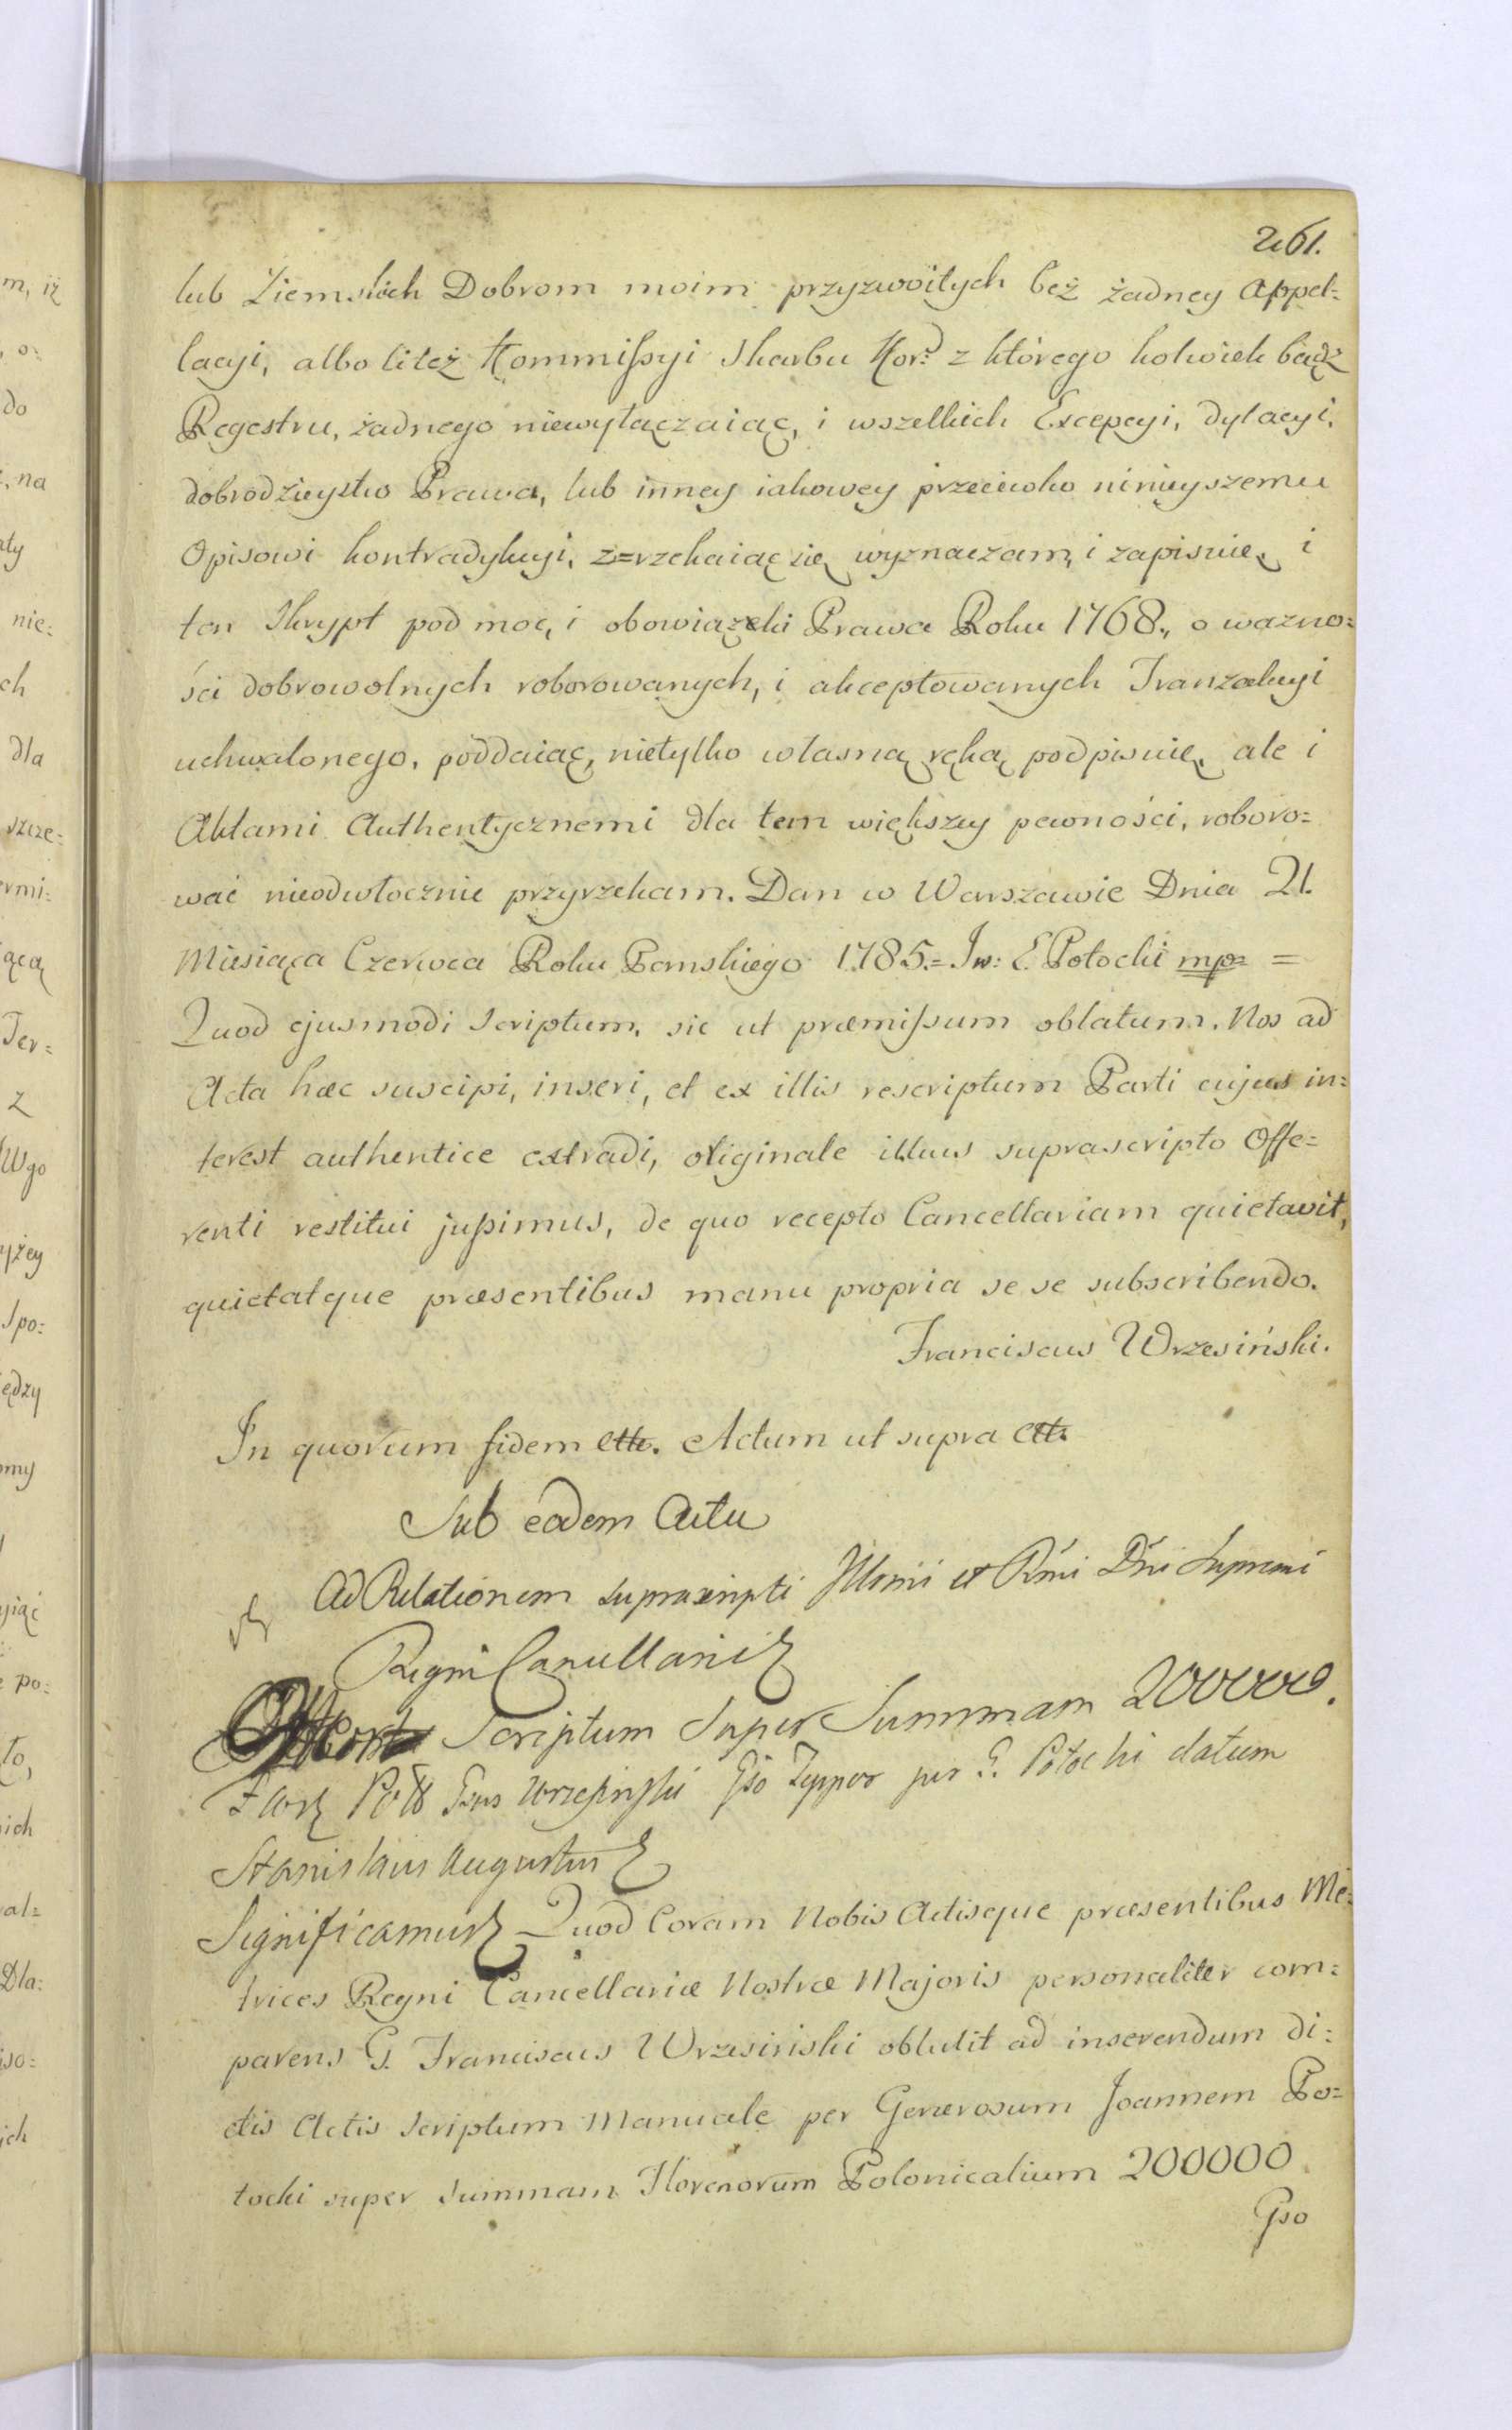 261.
lub Ziemskich Dobrom moim przyzwoitych beż żadney Appel=
lacyi, albo liteż Kommissyi Skarbu Kor: z którego kolwiek bądź
Regestru, żadnego niewyłączaiąc, i wszelkich Excepcyi, dylacyi,
dobrodzieystwo Prawa, lub inney iakowey przeciwko ninieyszemu
Opisowi kontradykcyi, z=rzekaiąc się wyznaczam, i zapisuię, i
ten Skrypt pod moc, i obowiązki Prawa Roku 1768., o wazno=
ści dobrowolnych roborowanych, i akceptowanych Tranzakcyi
uchwalonego, poddaiąc, nietylko własną ręką podpisuię, ale i
Aktami Authentycznemi dla tem większey pewności, roboro=
wać nieodwłocznie przyrzekam. Dan w Warszawie Dnia 21.
Miesiąca Czerwca Roku Pamskiego 1785.= Jw: E Potocki mp= =
Quod ejusmodi Scriptum, sic ut præmissum oblatum, Nos ad
Acta hæc suscipi, inseri, et ex illis rescriptum Parti cujus in=
terest authentice extradi, originale illius suprascripto Offe=
renti restitui jussimus, de quo recepto Cancellariam quietavit,
quietatque præsentibus manu propria se se subscribendo.
Franciscus Wrzesiński.
In quorum fidem ett. Actum ut supra ett.
Sub eodem Actu
Ad Relationem suprascripti Illmi et Rmi Dni Supremi
Regni Cancellarii
Scriptum Super Summam 200000.
Wrzesinski Gso per G. Potocki datum
Stanislaus Augustus
Significamus Quod Coram Nobis Actisque præsentibus Me=
trices Regni Cancellariæ Nostræ Majoris personaliter com=
parens G. Franciscus Wrzesiński obtulit ad inserendum di=
ctis Actis Scriptum Manuale per Generosum Joannem Po=
tocki super summam Florenorum Polonicalium 200000
Gso
m, iż
o=
do
, na
aty
nie=
ch
dla
szcze=
ermi=
ącą
Ter=
z
Wgo
yżey
Spo=
ędzy
omy
yiąć
po=
to,
ich
al=
Dla=
iso=
ich